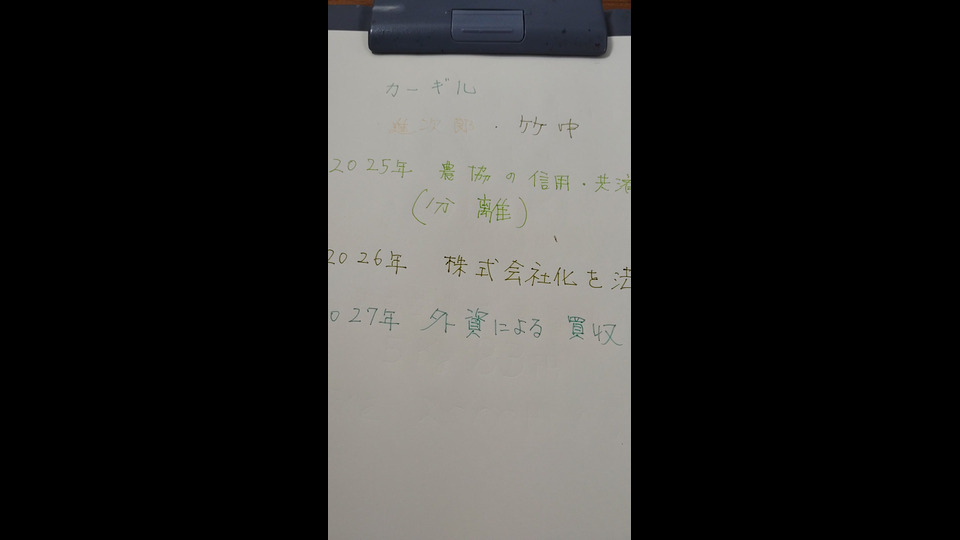 カーギル
進次郎・竹中
2025年 農協の信用・共済
(分離)
2026年 株式会社化を法
027年 外資による買収